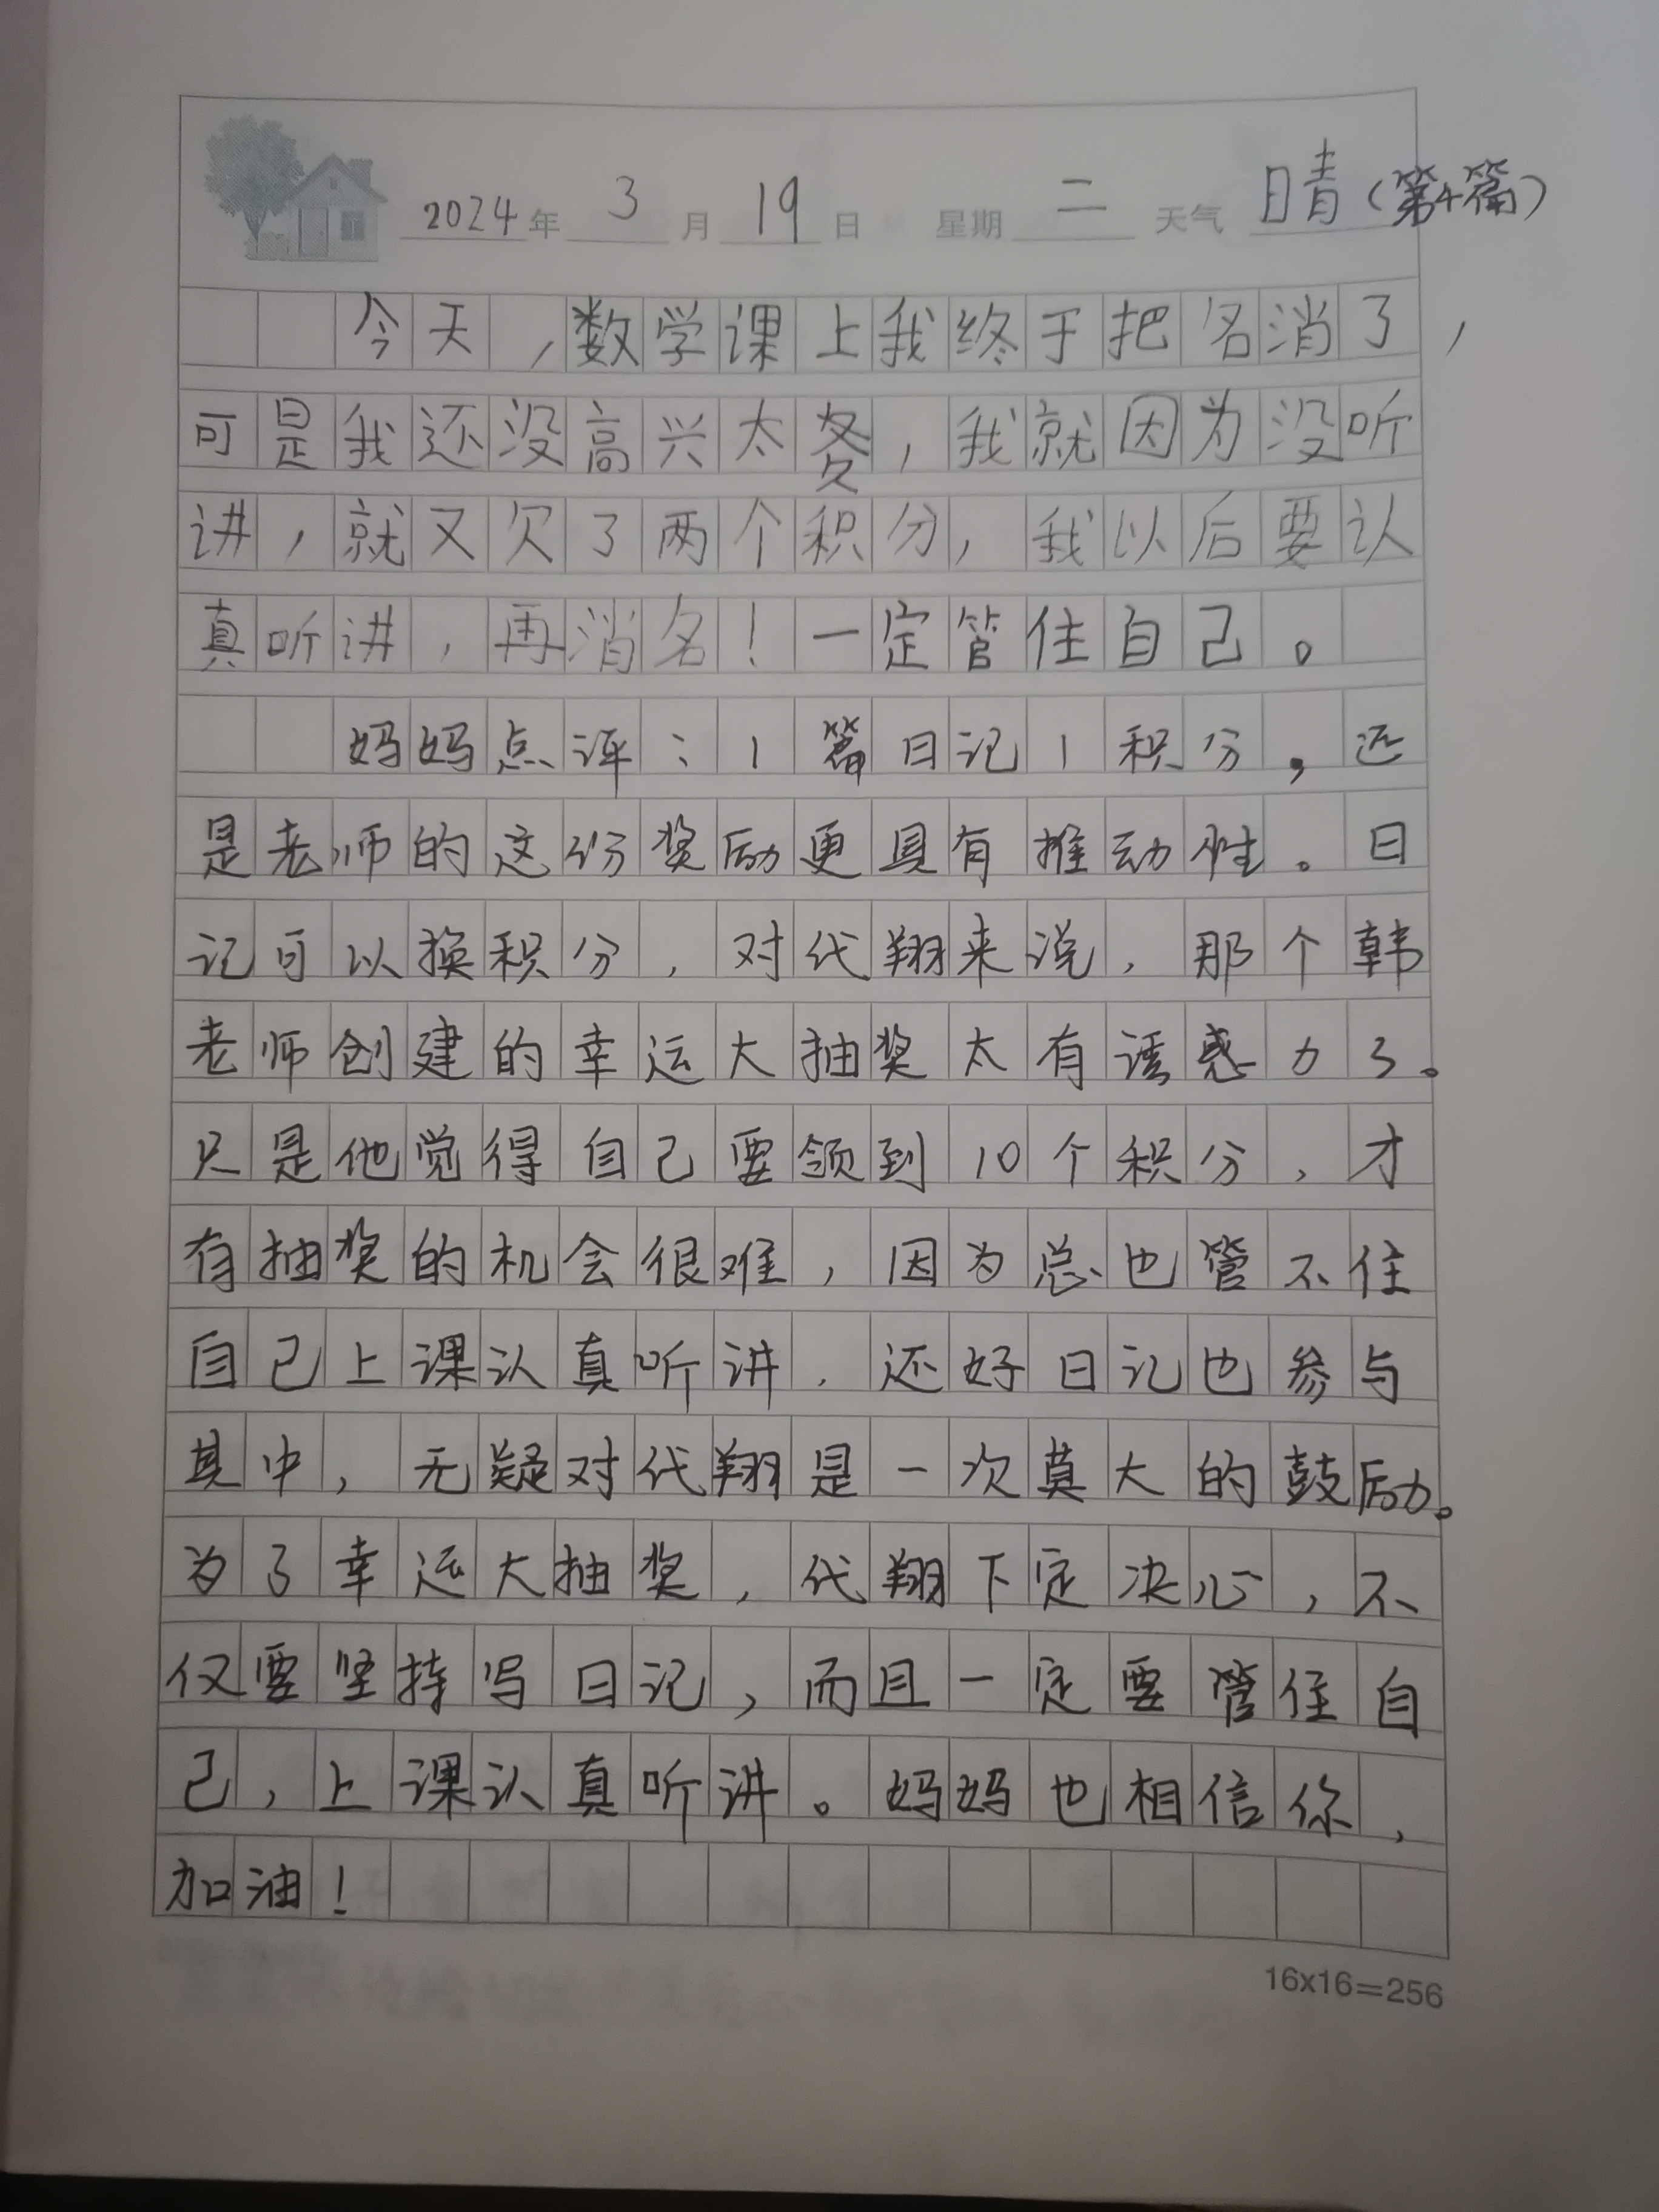 2024年3月19日 星期二 天气 晴(第4篇)
今天,数学课上我终于把名消了,
可是我还没高兴太久,我就因为没听
讲,就又欠了两个积分,我以后要认
真听讲,再消名!一定管住自己。
妈妈点评:1篇日记1积分,还
是老师的这份奖励更具有推动性。日
记可以换积分,对代翔来说,那个韩
老师创建的幸运大抽奖太有诱惑力了。
只是他觉得自己要领到10个积分,才
有抽奖的机会很难,因为总也管不住
自己上课认真听讲.还好日记也参与
其中,无疑对代翔是一次莫大的鼓励。
为了幸运大抽奖,代翔下定决心,不
仅要坚持写日记,而且一定要管住自
己,上课认真听讲。妈妈也相信你,
加油!
16x16=256